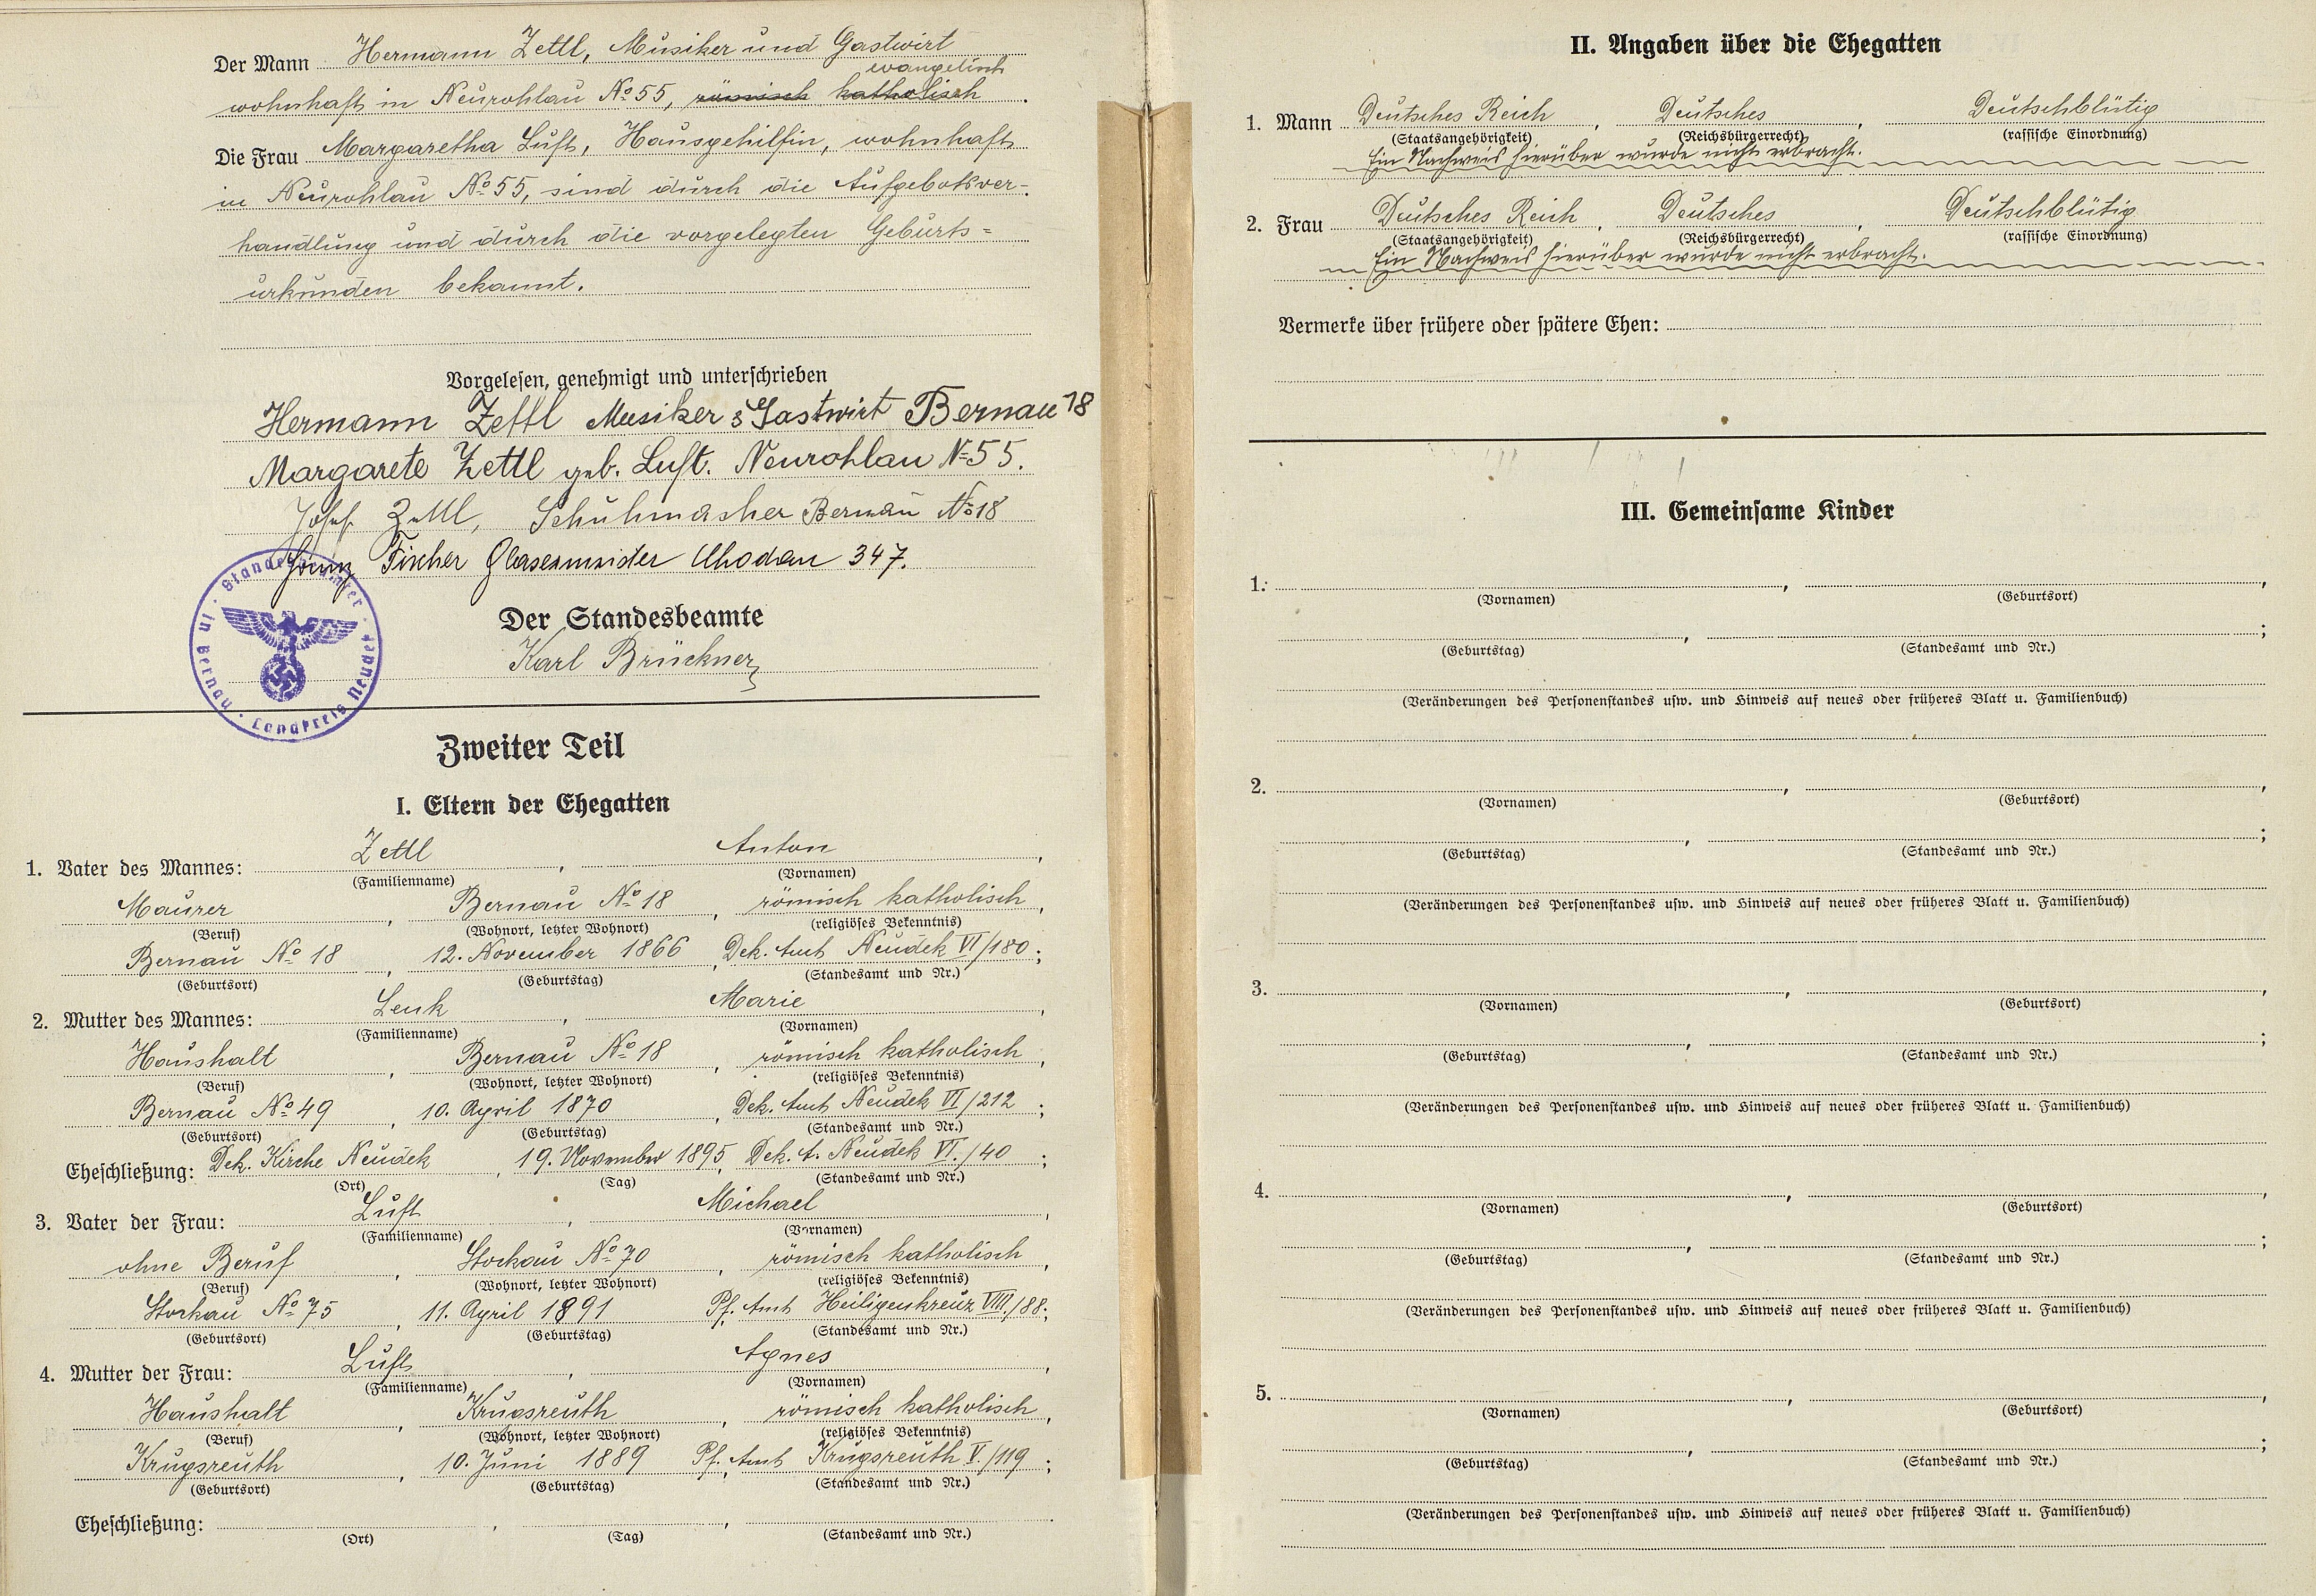 Der Mann Hermann Zettl, Musiker und Gastwirt
evangelisch
wohnhaft in Neurohlau No 55, römisch katholisch.
Die Frau Margaretha Luft, Hausgehilfin, wohnhaft
in Neurohlau No 55, sind durch die Aufgebotsver-
handlung und durch die vorgelegten Geburts=
urkunden bekannt.
Vorgelesen, genehmigt und unterschrieben
Hermann Zettl Musiker & Gastwirt Bernau 18
Margarete Zettl geb. Luft. Neurohlau No 55.
Josef Zettl, Schuhmacher Bernau No 18
Fischer Chodau 347.
Der Standesbeamte
Karl Brückner
Standesbeamter · in Bernau · Landkreis Neudek ·
Zweiter Teil
I. Eltern der Ehegatten
1. Vater des Mannes: Zettl, Anton,
(Familienname) (Vornamen)
Maurer, Bernau No 18, römisch katholisch,
(Beruf) (Wohnort, letzter Wohnort) (religiöses Bekenntnis)
Bernau No 18, 12. November 1866, Dek. Amt Neudek VI/180;
(Geburtsort) (Geburtstag) (Standesamt und Nr.)
2. Mutter des Mannes: Lenk, Marie,
(Familienname) (Vornamen)
Haushalt, Bernau No 18, römisch katholisch,
(Beruf) (Wohnort, letzter Wohnort) (religiöses Bekenntnis)
Bernau No 49, 10. April 1870, Dek. Amt Neudek VI/212;
(Geburtsort) (Geburtstag) (Standesamt und Nr.)
Eheschließung: Dek. Kirche Neudek, 19. November 1895, Dek. A. Neudek VI./40;
(Ort) (Tag) (Standesamt und Nr.)
3. Vater der Frau: Luft, Michael,
(Familienname) (Vornamen)
ohne Beruf, Stockau No 70, römisch katholisch,
(Beruf) (Wohnort, letzter Wohnort) (religiöses Bekenntnis)
Stockau No 75, 11. April 1891 Pf. Amt Heiligenkreuz VIII./88;
(Geburtsort) (Geburtstag) (Standesamt und Nr.)
4. Mutter der Frau: Luft, Agnes,
(Familienname) (Vornamen)
Haushalt, Krugsreuth, römisch katholisch,
(Beruf) (Wohnort, letzter Wohnort) (religiöses Bekenntnis)
Krugsreuth, 10. Juni 1889 Pf. Amt Krugsreuth V./119;
(Geburtsort) (Geburtstag) (Standesamt und Nr.)
Eheschließung: , , .
(Ort) (Tag) (Standesamt und Nr.)
II. Angaben über die Ehegatten
1. Mann Deutsches Reich, Deutsches, Deutschblütig
(Staatsangehörigkeit) (Reichsbürgerrecht) (rassische Einordnung)
Ein Nachweis hierüber wurde nicht erbracht.
2. Frau Deutsches Reich, Deutsches, Deutschblütig
(Staatsangehörigkeit) (Reichsbürgerrecht) (rassische Einordnung)
Ein Nachweis hierüber wurde nicht erbracht.
Vermerke über frühere oder spätere Ehen:
III. Gemeinsame Kinder
1. , ,
(Vornamen) (Geburtsort)
, ;
(Geburtstag) (Standesamt und Nr.)
(Veränderungen des Personenstandes usw. und Hinweis auf neues oder früheres Blatt u. Familienbuch)
2. , ,
(Vornamen) (Geburtsort)
, ;
(Geburtstag) (Standesamt und Nr.)
(Veränderungen des Personenstandes usw. und Hinweis auf neues oder früheres Blatt u. Familienbuch)
3. , ,
(Vornamen) (Geburtsort)
, ;
(Geburtstag) (Standesamt und Nr.)
(Veränderungen des Personenstandes usw. und Hinweis auf neues oder früheres Blatt u. Familienbuch)
4. , ,
(Vornamen) (Geburtsort)
, ;
(Geburtstag) (Standesamt und Nr.)
(Veränderungen des Personenstandes usw. und Hinweis auf neues oder früheres Blatt u. Familienbuch)
5. , ,
(Vornamen) (Geburtsort)
, ;
(Geburtstag) (Standesamt und Nr.)
(Veränderungen des Personenstandes usw. und Hinweis auf neues oder früheres Blatt u. Familienbuch)